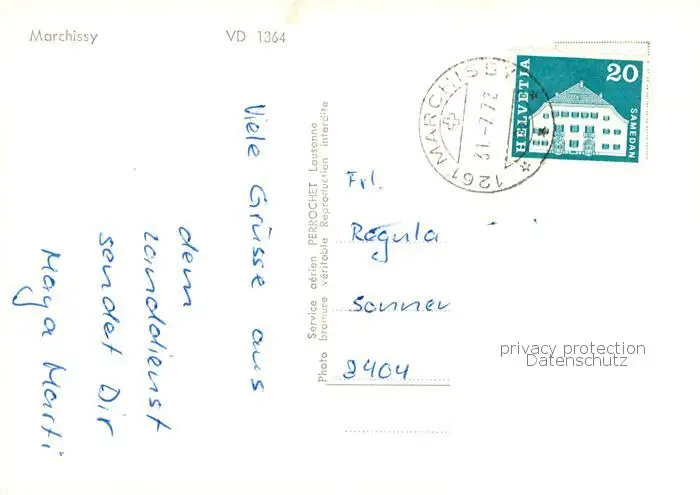 Marchissy VD 1364
Viele Grüsse aus
dem
Landdienst
sendet Dir
Maya Marti
Service aérien PERROCHET Lausanne
Photo bromure véritable Reproduction interdite
1261 MARCHISSY
31.-7.72
HELVETIA
20
SAMEDAN
Frl.
Regula
Sonnen
8404
privacy protection
Datenschutz